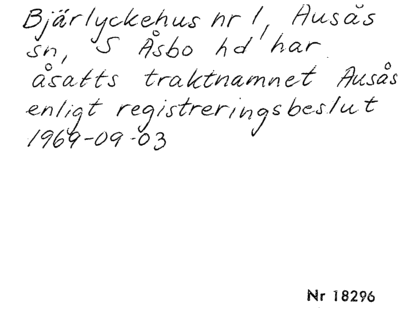 Bjärlyckehus nr 1, Ausås
sn, S Åsbo hd har
åsatts traktnamnet Ausås
enligt registreringsbeslut
1969-09-03
Nr 18296